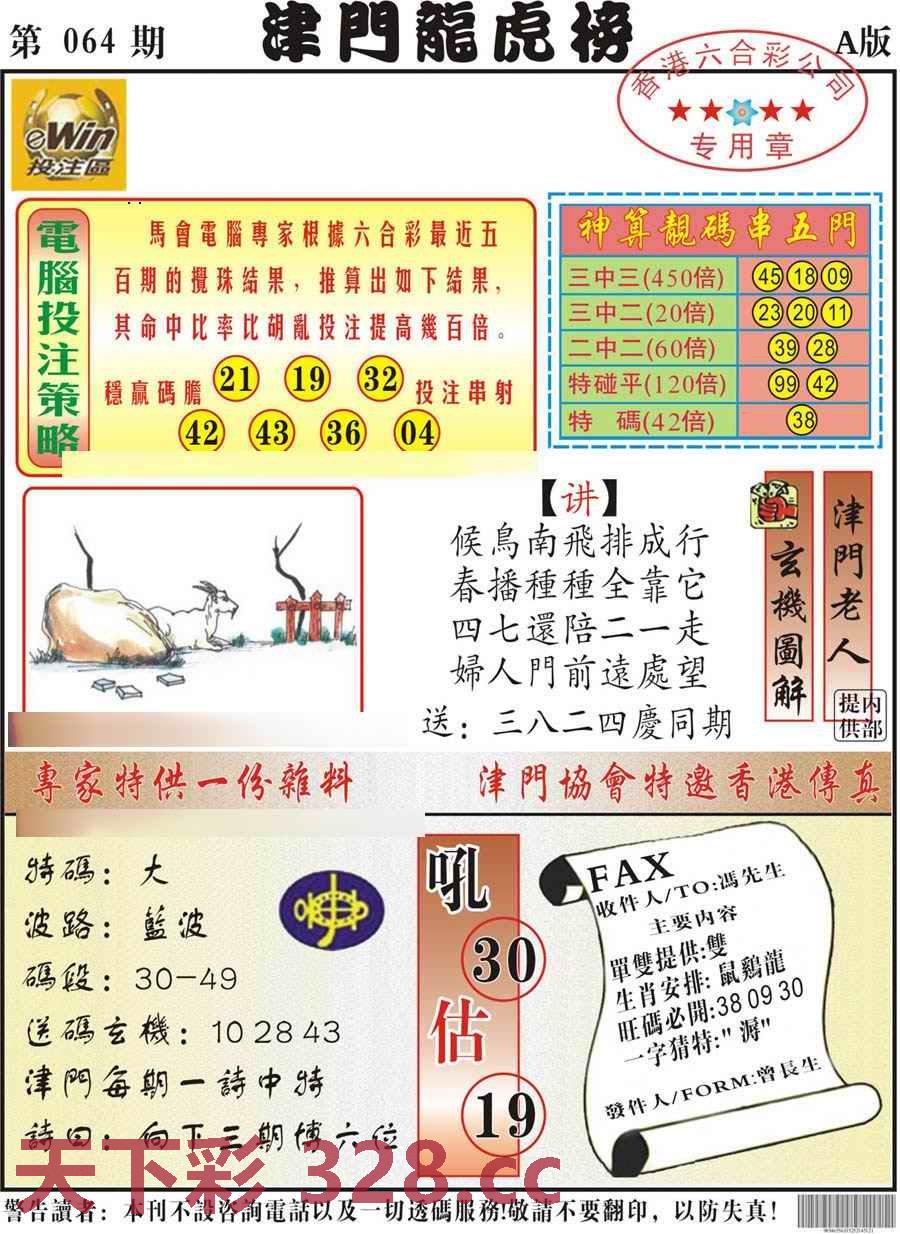 第 064 期
津門龍虎榜
A版
香港六合彩公司
专用章
eWin
投注區
電腦投注策略
馬會電腦專家根據六合彩最近五
百期的攪珠結果，推算出如下結果，
其命中比率比胡亂投注提高幾百倍。
穩贏碼膽 21 19 32 投注串射
42 43 36 04
神算靚碼串五門
三中三(450倍) 45 18 09
三中二(20倍) 23 20 11
二中二(60倍) 39 28
特碰平(120倍) 99 42
特 碼(42倍) 38
【讲】
候鳥南飛排成行
春播種種全靠它
四七還陪二一走
婦人門前遠處望
送：三八二四慶同期
玄機圖解
津門老人
内部提供
專家特供一份雜料
津門協會特邀香港傳真
特碼：大
波路：藍波
碼段：30-49
送碼玄機：10 28 43
津門每期一詩中特
詩曰：向下三期博六位
吼
30
估
19
FAX
收件人/TO:馮先生
主要内容
單雙提供:雙
生肖安排: 鼠鷄龍
旺碼必開:38 09 30
一字猜特:" 溽"
發件人/FORM:曾長生
天下彩 328.cc
警告讀者：本刊不設咨詢電話以及一切透碼服務!敬請不要翻印，以防失真!